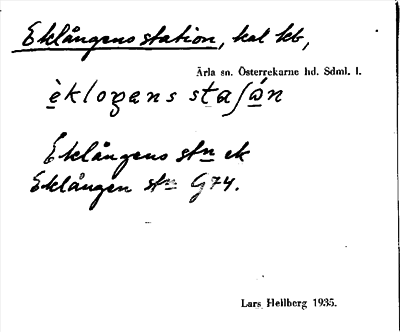 Eklångens station, kal kb,
Ärla sn. Österrekarne hd. Sdml. l.
èklogans staʃɷ́n
Eklångens stn ek
Eklången stn G74.
Lars Hellberg 1935.